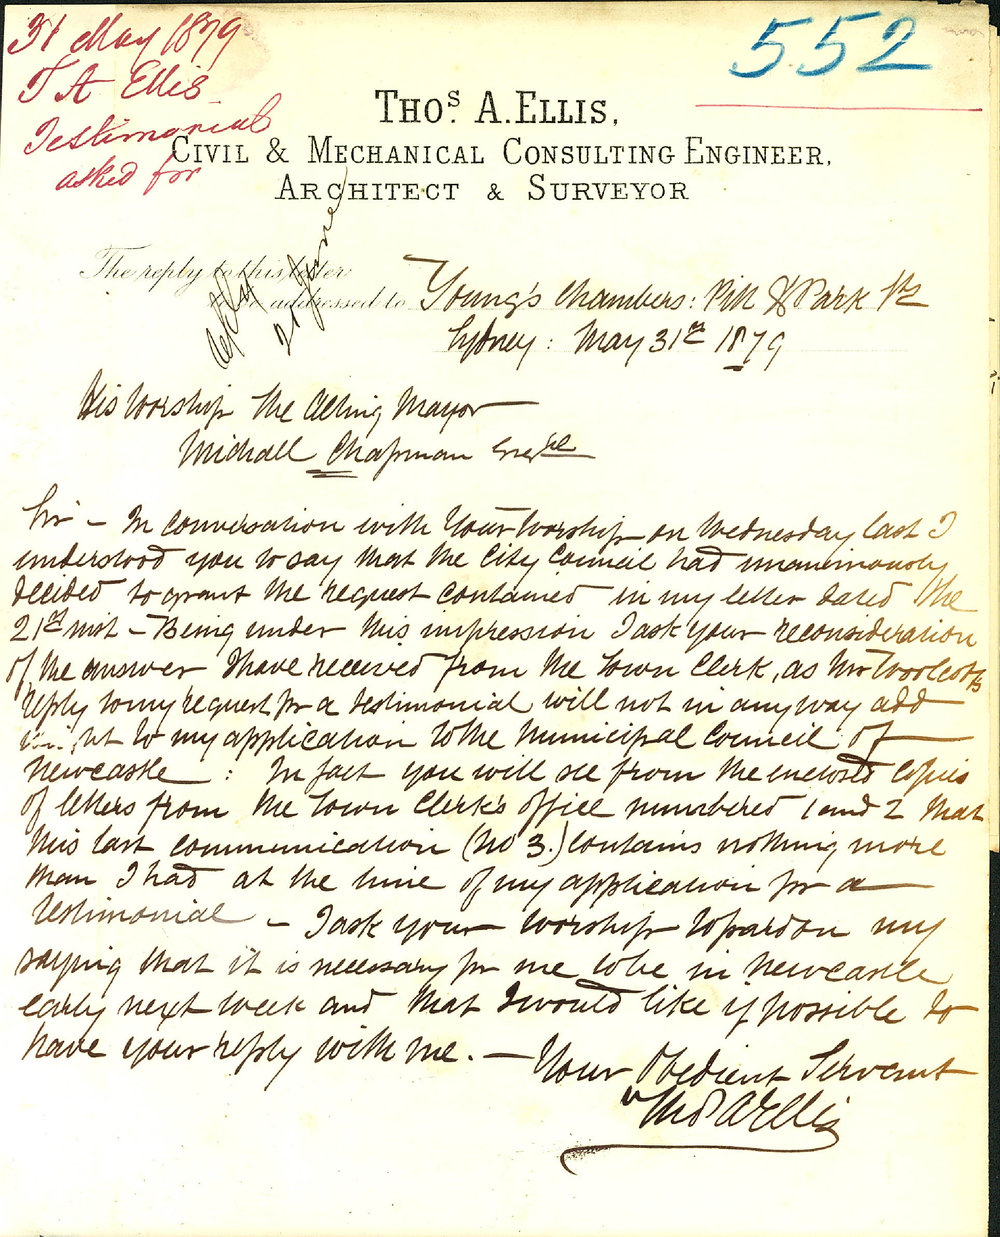 31 May 1879
T A Ellis
Testimonial
asked for
552
Thos. A. Ellis,
Civil & Mechanical Consulting Engineer,
Architect & Surveyor
The reply to this letter
be addressed to Young's Chambers: Pitt & Park Sts
Sydney: May 31st 1879
Reply
21 June
His Worship The Acting Mayor
Michael Chapman Esqre
Sir – In conversation with Your Worship on Wednesday last I
understood you to say that the City Council had unanimously
decided to grant the request contained in my letter dated the
21st inst – Being under this impression I ask your reconsideration
of the answer I have received from the Town Clerk, as Mr Woolcott's
reply to my request for a testimonial will not in any way add
to my application to the Municipal Council of
Newcastle: In fact you will see from the enclosed copies
of letters from the Town Clerk's office numbered 1 and 2 that
this last communication (No 3.) contains nothing more
than I had at the time of my application for a
testimonial – I ask your worship to pardon my
saying that it is necessary for me to be in Newcastle
early next week and that I would like if possible to
have your reply with me. –
Your Obedient Servant
Thos A Ellis